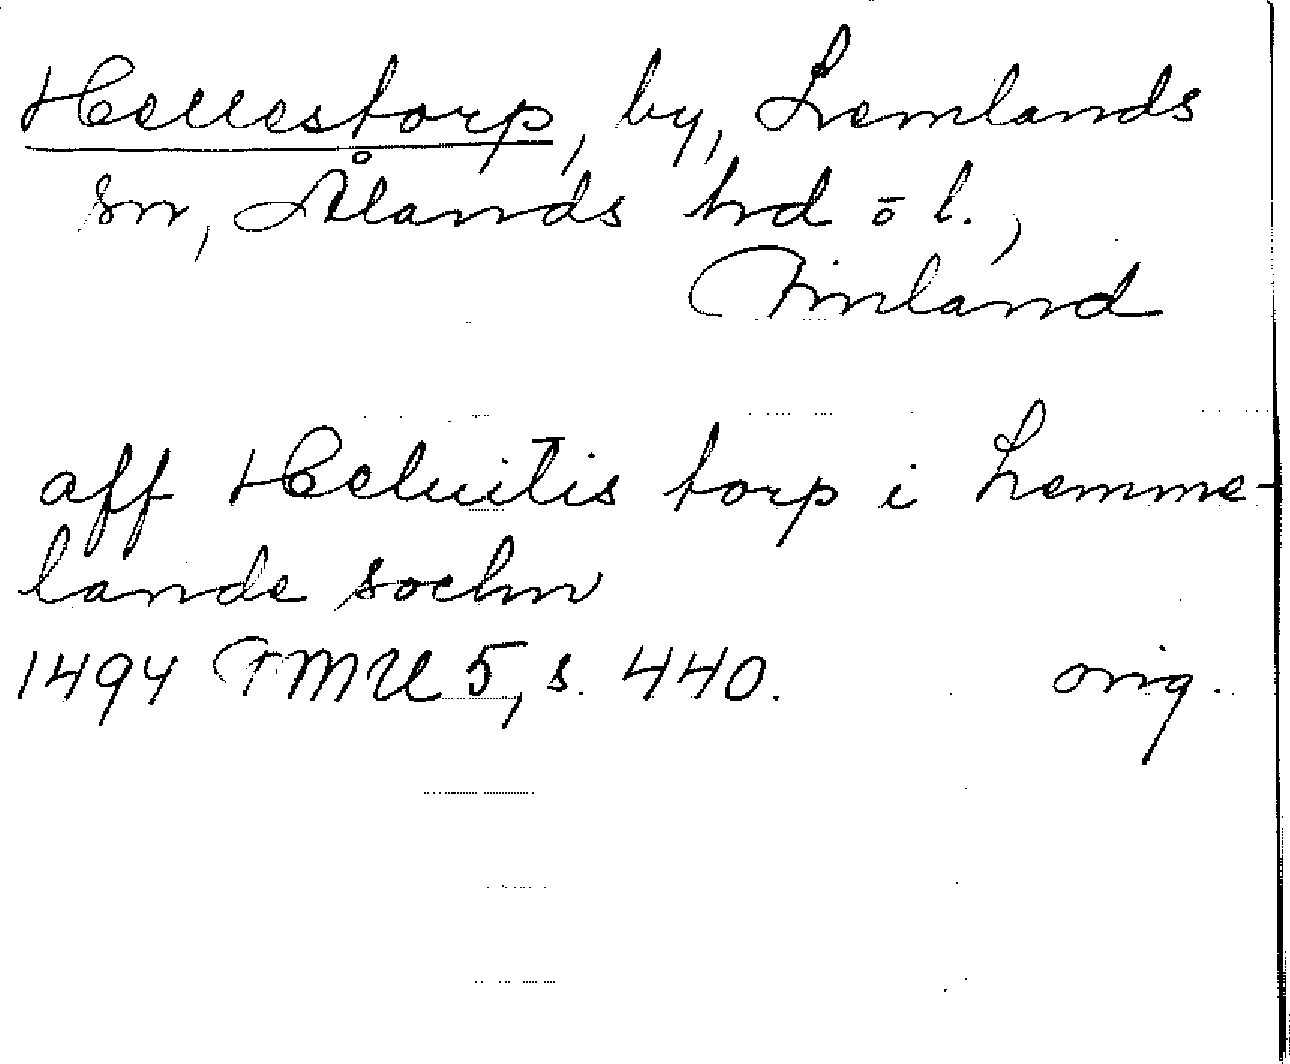 Hellestorp, by, Lemlands
sn, Ålands hrd o l.,
Finland
aff Heluitis torp i Lemme-
lande sochn
1494 FMU 5, s. 440. orig.